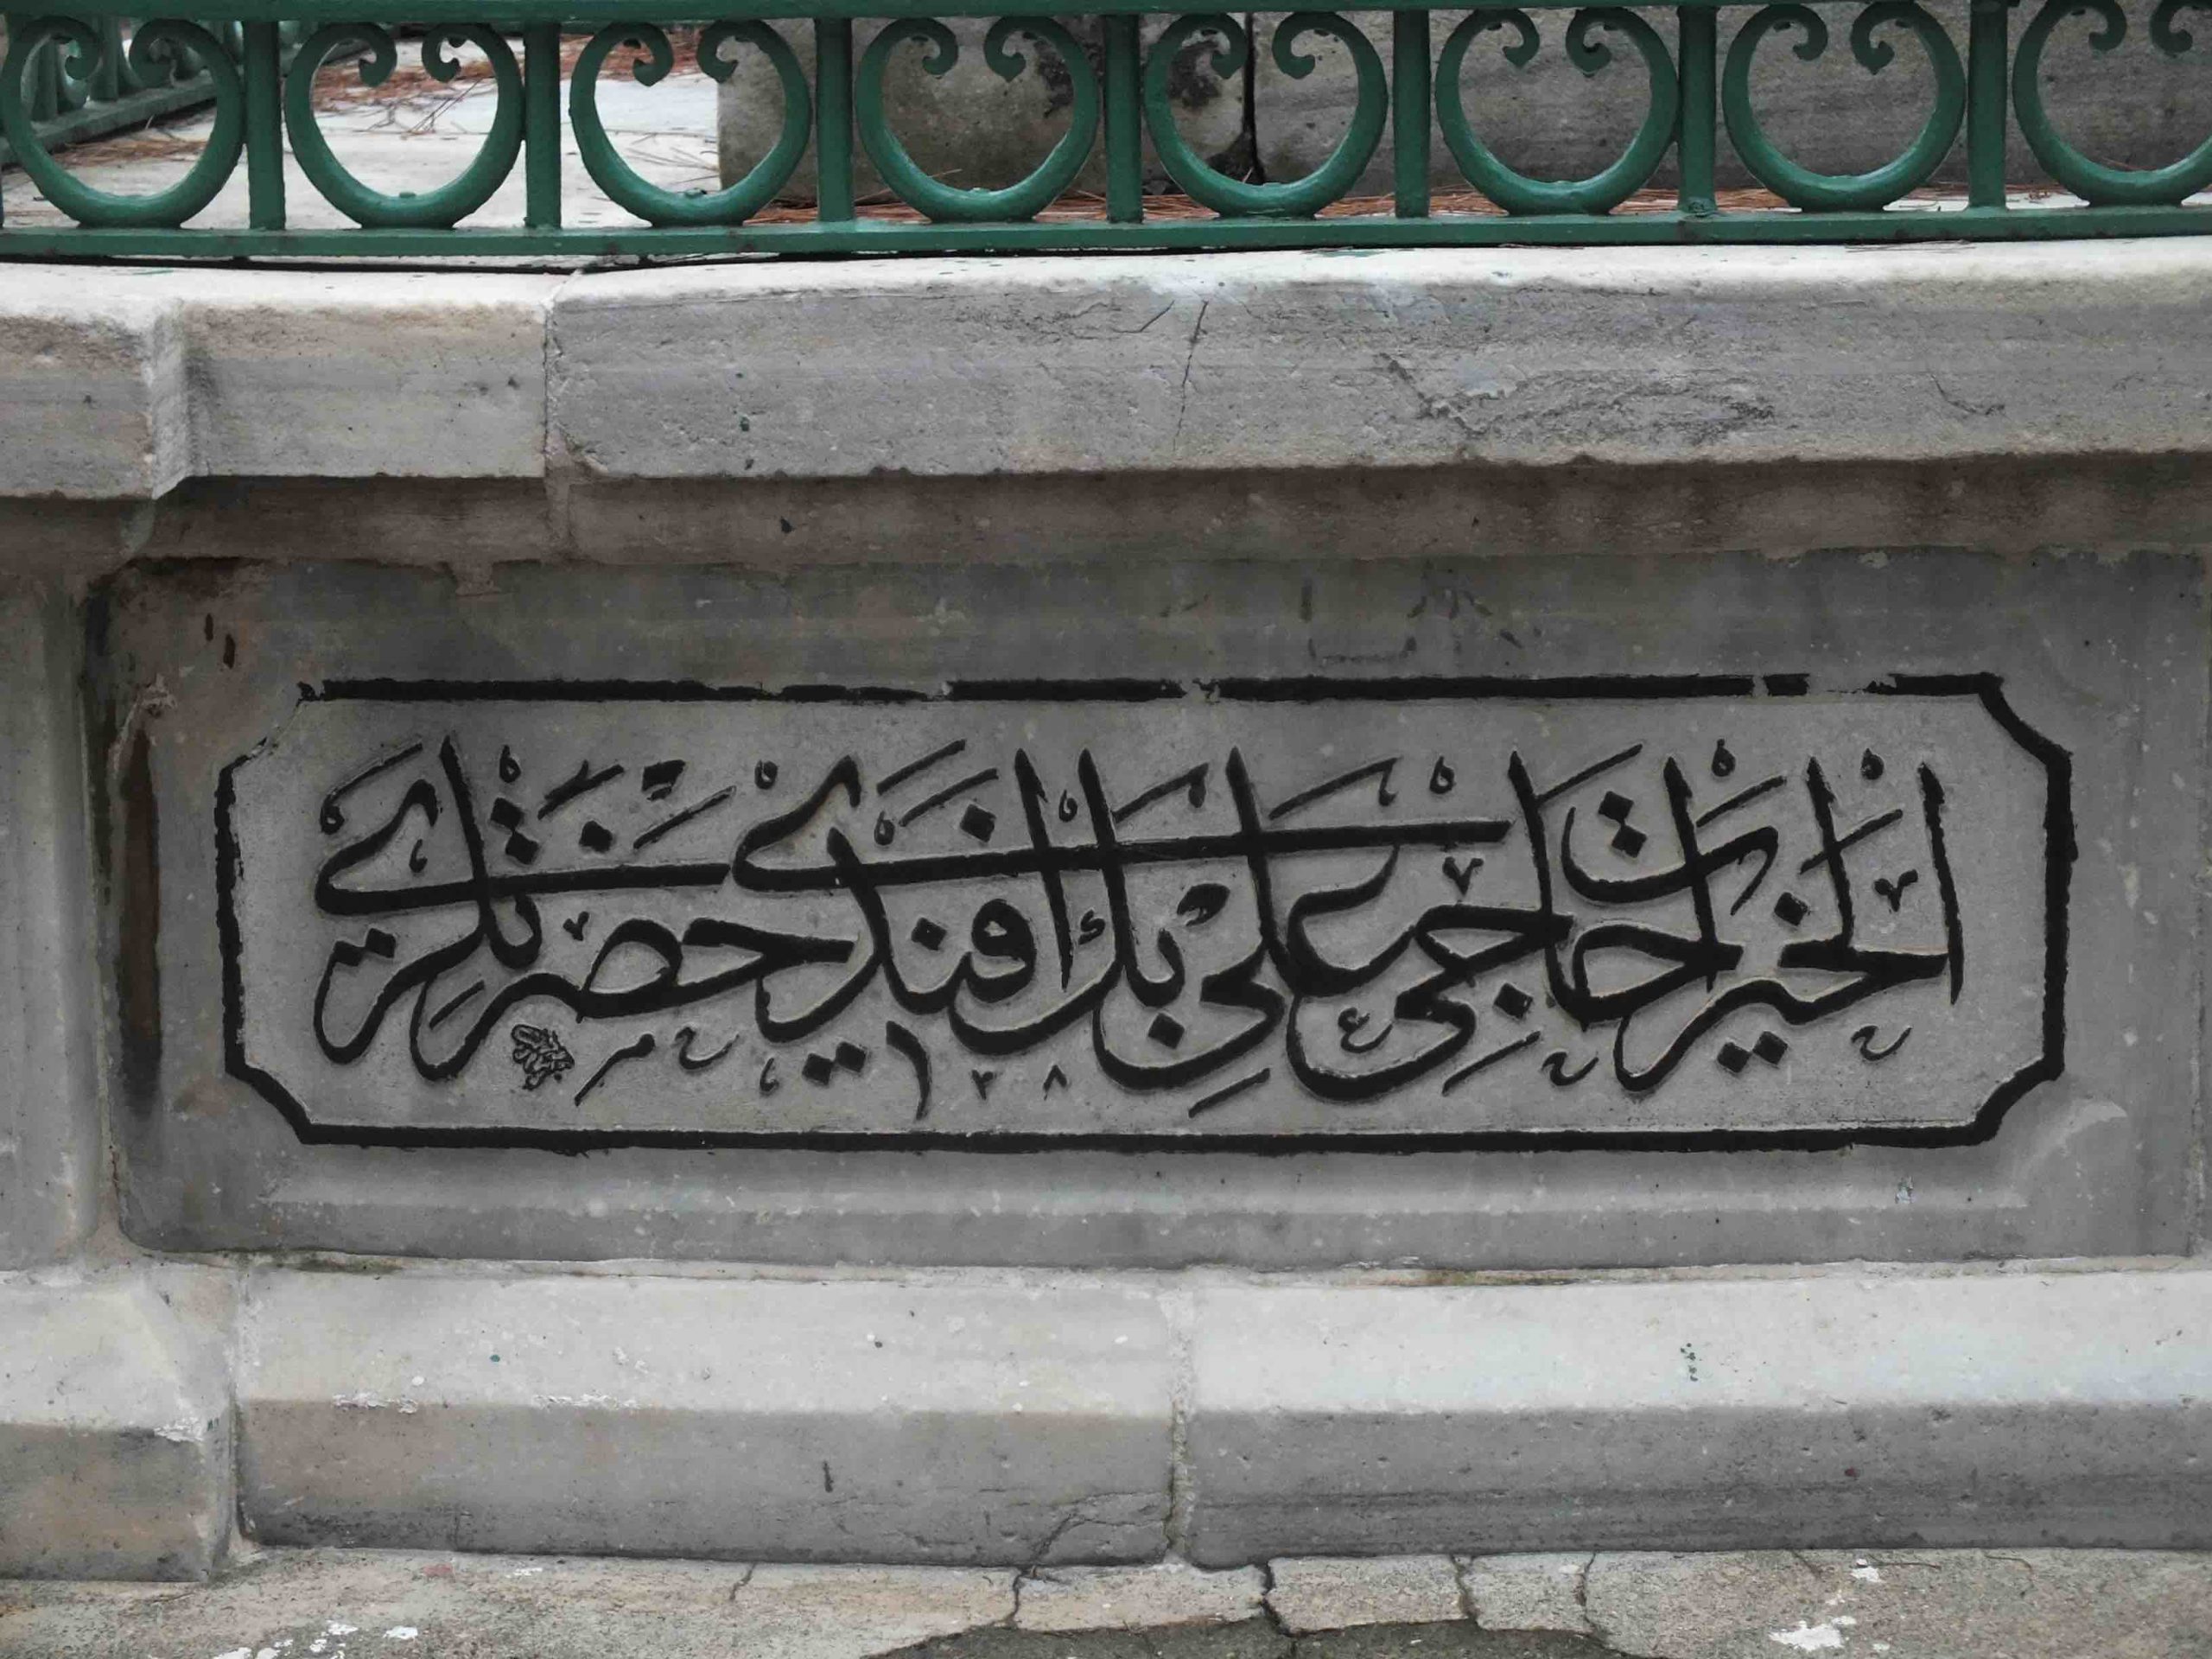 الخيرات حاجى على بك افندى حضرتلرى